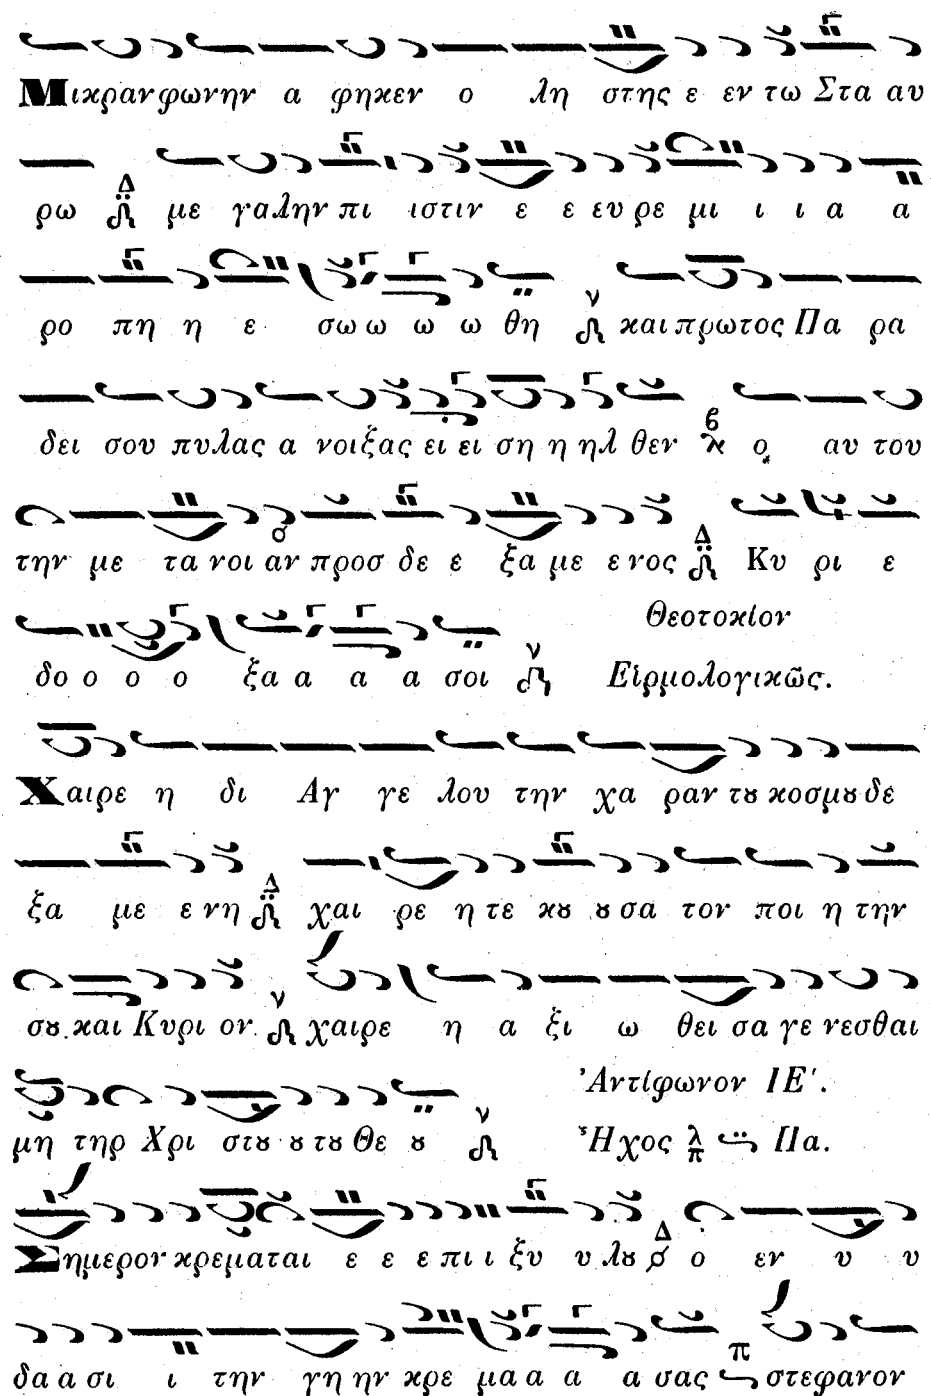 Μικραν φωνην α φηκεν ο λη στης ε εν τω Στα αυ
Δ
ρω με γαλην πι ιστιν ε ε ευ ρε μι ι ι α α
ν
ρο πη η ε σω ω ω ω θη και πρωτος Πα ρα
δει σου πυλας α νοιξας ει ει ση η ηλ θεν ο αυ του
Δ
την με τα νοι αν προσ δε ε ξα με ε νος Κυ ρι ε
Θεοτοκίον
ν
δο ο ο ο ξα α α α σοι Εἱρμολογικῶς.
Χαιρε η δι Αγ γε λου την χα ραν τȣ κοσμȣ δε
Δ
ξα με ε νη χαι ρε η τε κȣ ȣ σα τον ποι η την
ν
σȣ και Κυρι ον χαιρε η α ξι ω θει σα γε νεσθαι
Ἀντίφωνον ΙΕ΄.
ν
μη τηρ Χρι στȣ ȣ τȣ Θε ȣ Ἦχος λ π Πα.
Δ
Σημερον κρεμαται ε ε ε πι ι ξυ υ λȣ ο εν υ υ
π
δα α σι ι την γη ην κρε μα α α α σας στεφανον